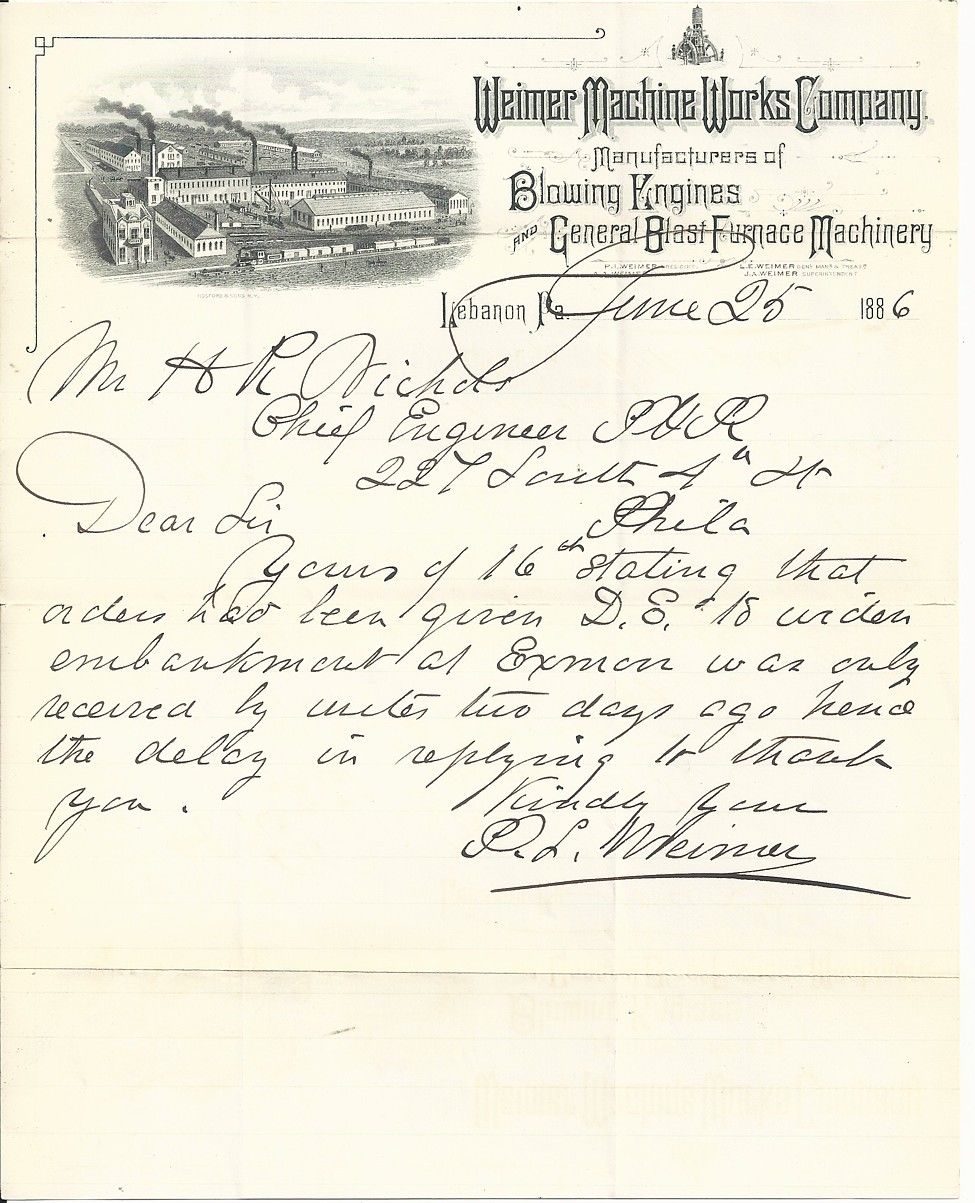 Weimer Machine Works Company.
Manufacturers of
Blowing Engines
AND General Blast Furnace Machinery
P.L. WEIMER
L.E. WEIMER GEN'L MANG'R & TREAS'R
J.A. WEIMER SUPERINTENDENT
Lebanon Pa. June 25 1886
Mr H R Nichols
Chief Engineer P & R
227 South 4th St
Phila
Dear Sir
Yours of 16th stating that
orders had been given D. E. to widen
embankment at Exmoor was only
received by writer two days ago hence
the delay in replying to thank
you.
Kindly Yours
P. L. Weimer